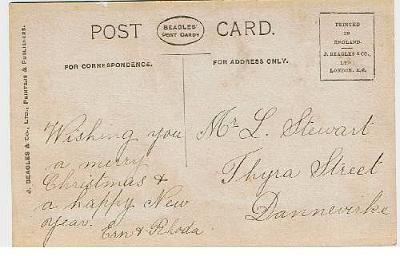 POST CARD.
BEAGLES'
POST CARDS
PRINTED
IN
ENGLAND.
J. BEAGLES & CO.,
LTD.,
LONDON. E.C.
FOR CORRESPONDENCE.
FOR ADDRESS ONLY.
J. BEAGLES & CO., LTD., PRINTERS & PUBLISHERS.
Wishing you
a merry
Christmas &
a happy New
Year.
Ern & Rhoda.
Mr L. Stewart
Thyra Street
Dannevirke